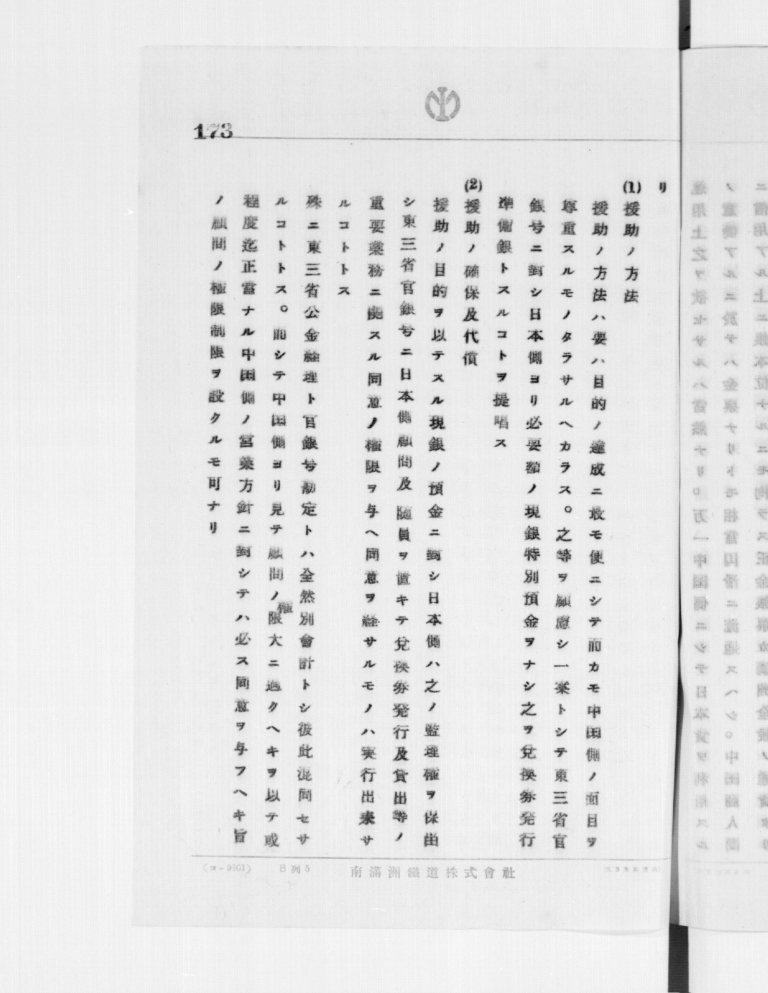 173
リ
(1) 援助ノ方法
援助ノ方法ハ要ハ目的ノ達成ニ最モ便ニシテ而カモ中国側ノ面目ヲ
尊重スルモノタラサルヘカラス。之等ヲ顧慮シ一案トシテ東三省官
銀号ニ対シ日本側ヨリ必要額ノ現銀特別預金ヲナシ之ヲ兌換券発行
準備銀トスルコトヲ提唱ス
(2) 援助ノ確保及代償
援助ノ目的ヲ以テスル現銀ノ預金ニ対シ日本側ハ之ノ監理権ヲ保留
シ東三省官銀号ニ日本側顧問及随員ヲ置キテ兌換券発行及貸出等ノ
重要業務ニ関スル同意ノ権限ヲ与ヘ同意ヲ経サルモノハ実行出来サ
ルコトトス
殊ニ東三省公金経理ト官銀号勘定トハ全然別会計トシ彼此混同セサ
ルコトトス。而シテ中国側ヨリ見テ顧問ノ権限大ニ過クヘキヲ以テ或
程度迄正当ナル中国側ノ営業方針ニ対シテハ必ス同意ヲ与フヘキ旨
ノ顧問ノ権限制限ヲ設クルモ可ナリ
(ヨ-9001) B列5 南滿洲鐵道株式會社